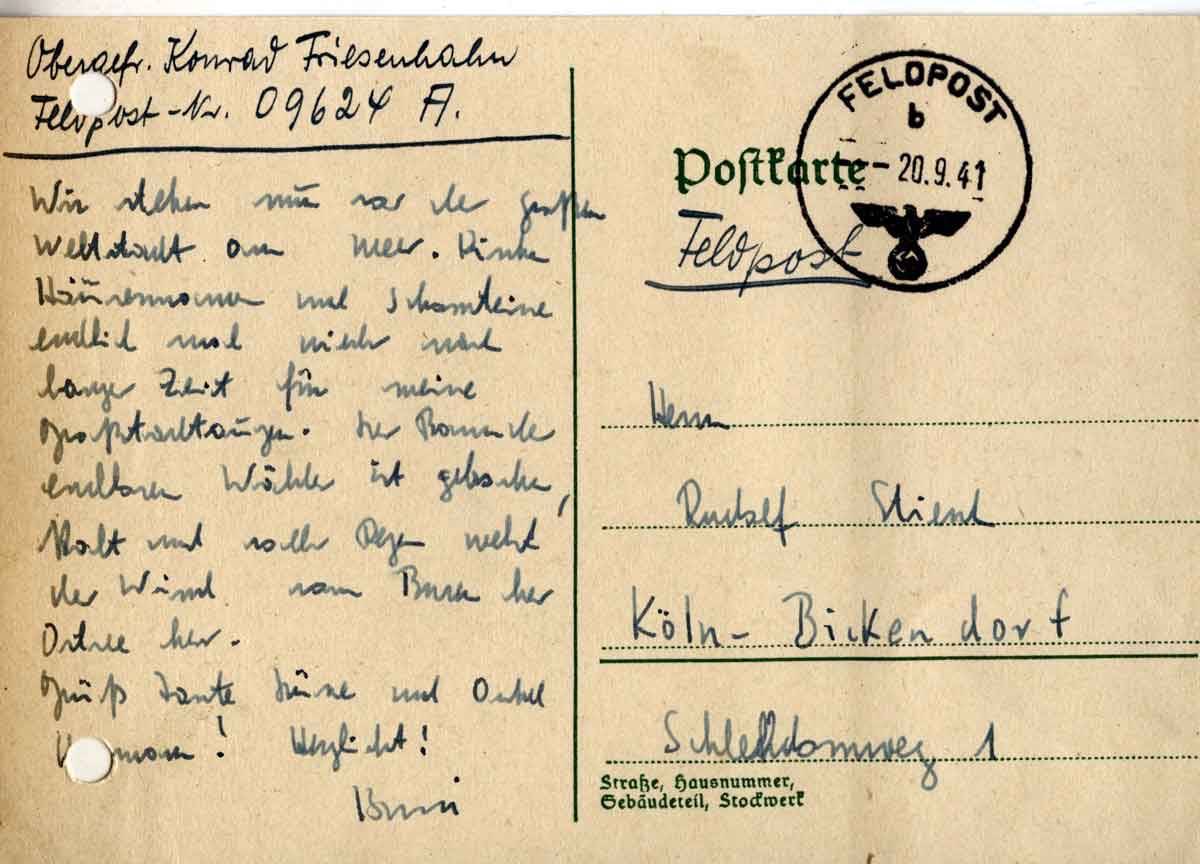 Obergefr. Konrad Friesenhahn
Feldpost-Nr. 09624 A.
Wir stehen nun vor der großen
Weltstadt am Meer.
Häusermauern und Schornsteine
endlich mal wieder nach
langer Zeit für meine
Großstadtaugen. Der Rand der
endlosen Wälder ist gebrochen,
Kalt und voller Regen weht
der Wind vom Busen der
Ostsee her.
Grüß Tante und Onkel
! Herzlichst!
FELDPOST
b
- 20.9.41
Postkarte
Feldpost
Herrn
Rudolf
Köln-Bickendorf
1
Straße, Hausnummer,
Gebäudeteil, Stockwerk